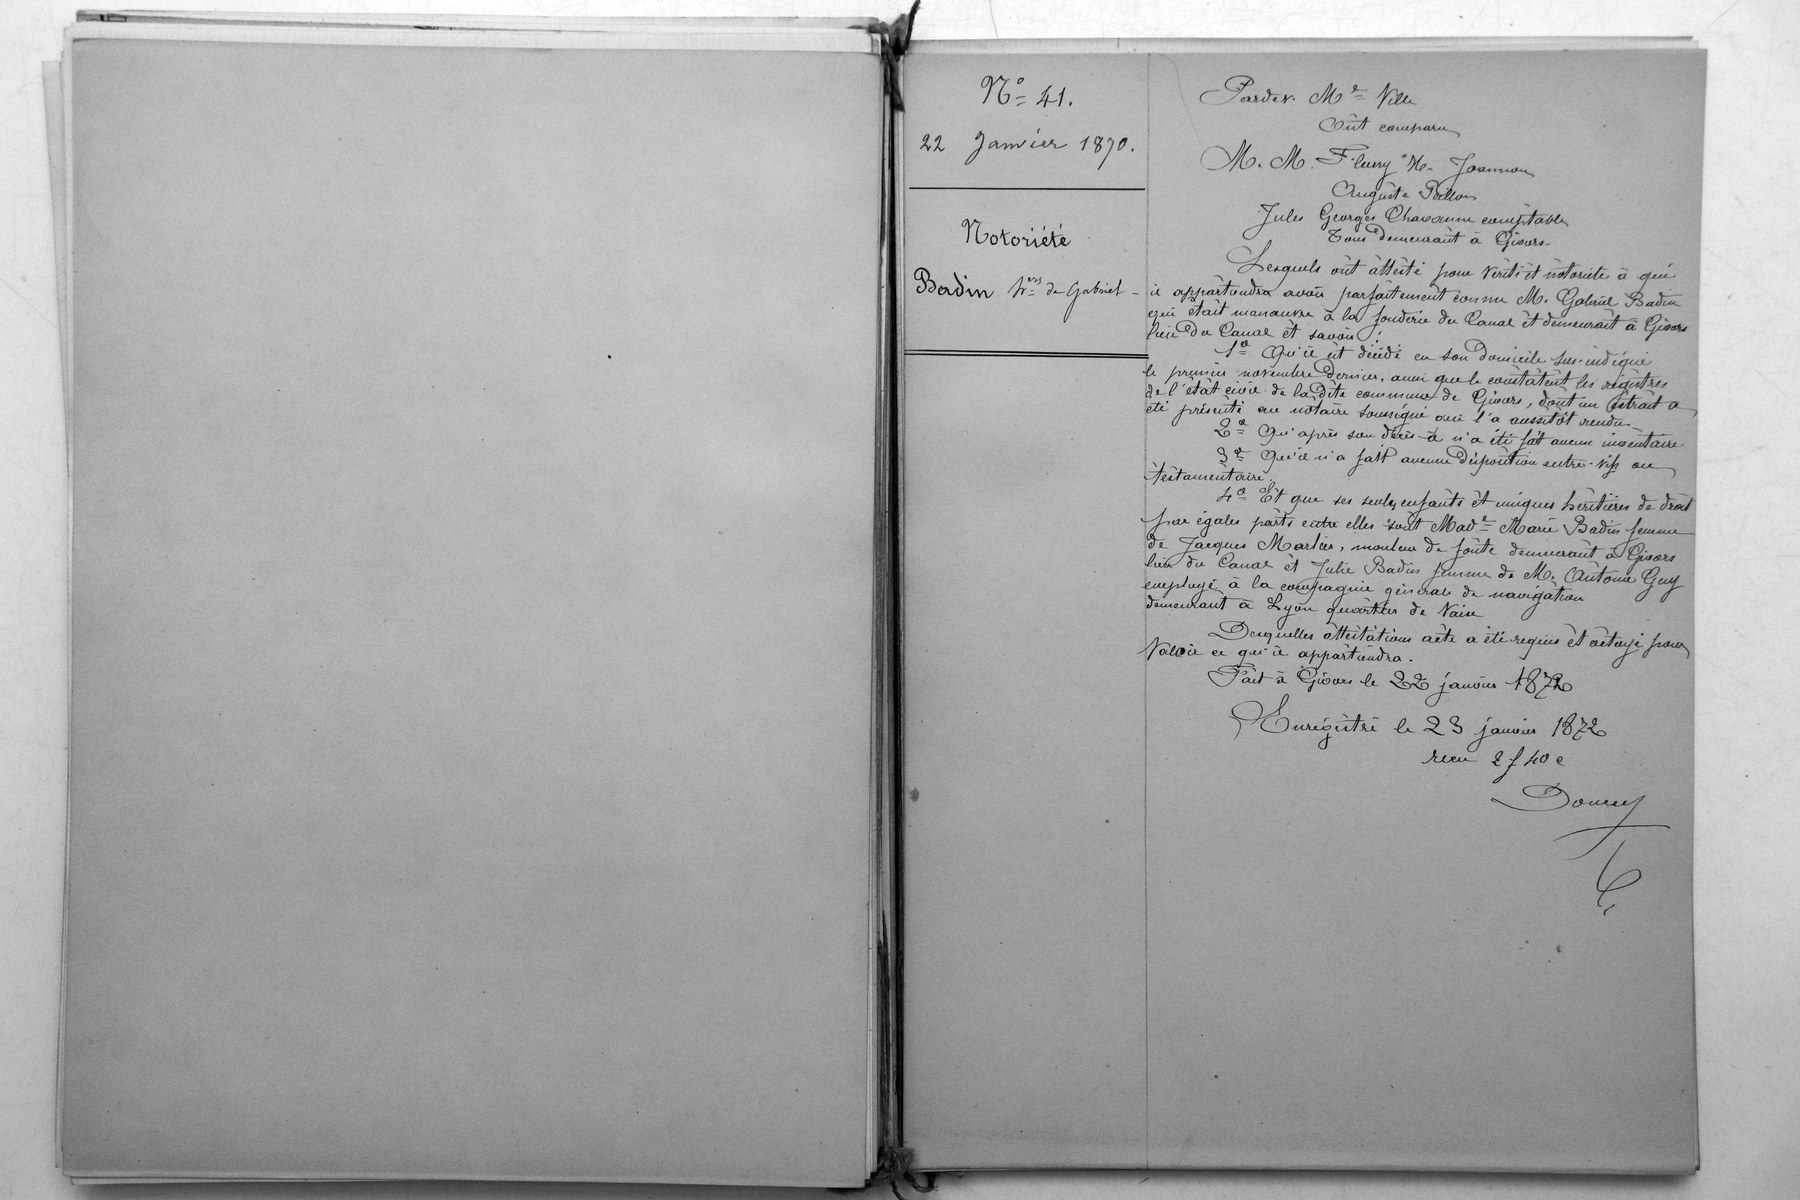 No 41.
22 Janvier 1870.
Notoriété
Badin hers de Gabriel -
Pardev. Me Ville
Ont comparu
M. M. Fleury Me Joannon
Auguste
Jules Georges Chavanne comptable
Tous demeurant à Givors.
Lesquels ont attesté pour vérité et notoriété à qui
il appartiendra avoir parfaitement connu M. Gabriel Badin
qui était manœuvre à la fonderie du Canal et demeurait à Givors
lieu du Canal et savoir :
1o Qu'il est décédé en son domicile sus-indiqué
le premier novembre dernier, ainsi que le constatent les régistres
de l'état civil de la dite commune de Givors, dont un extrait a
été présenté au notaire soussigné qui l'a aussitôt rendu.
2o Qu'après son décès il n'a été fait aucun inventaire
3o Qu'il n'a fait aucune disposition entre-vifs ou
testamentaire.
4o Et que ses seuls enfants et uniques héritières de droit
par égales parts entre elles sont Made Marie Badin femme
de Jacques Marlier, mouleur de fonte demeurant à Givors
lieu du Canal et Julie Badin femme de M. Antoine Guy
employé à la compagnie général de navigation
demeurant à Lyon quartier de Vaise
Desquelles attestations acte a été requis et octroyé pour
Valoir ce qu'il appartiendra.
Fait à Givors le 22 janvier 1872
Enregistré le 23 janvier 1872
recu 2 f 40 c